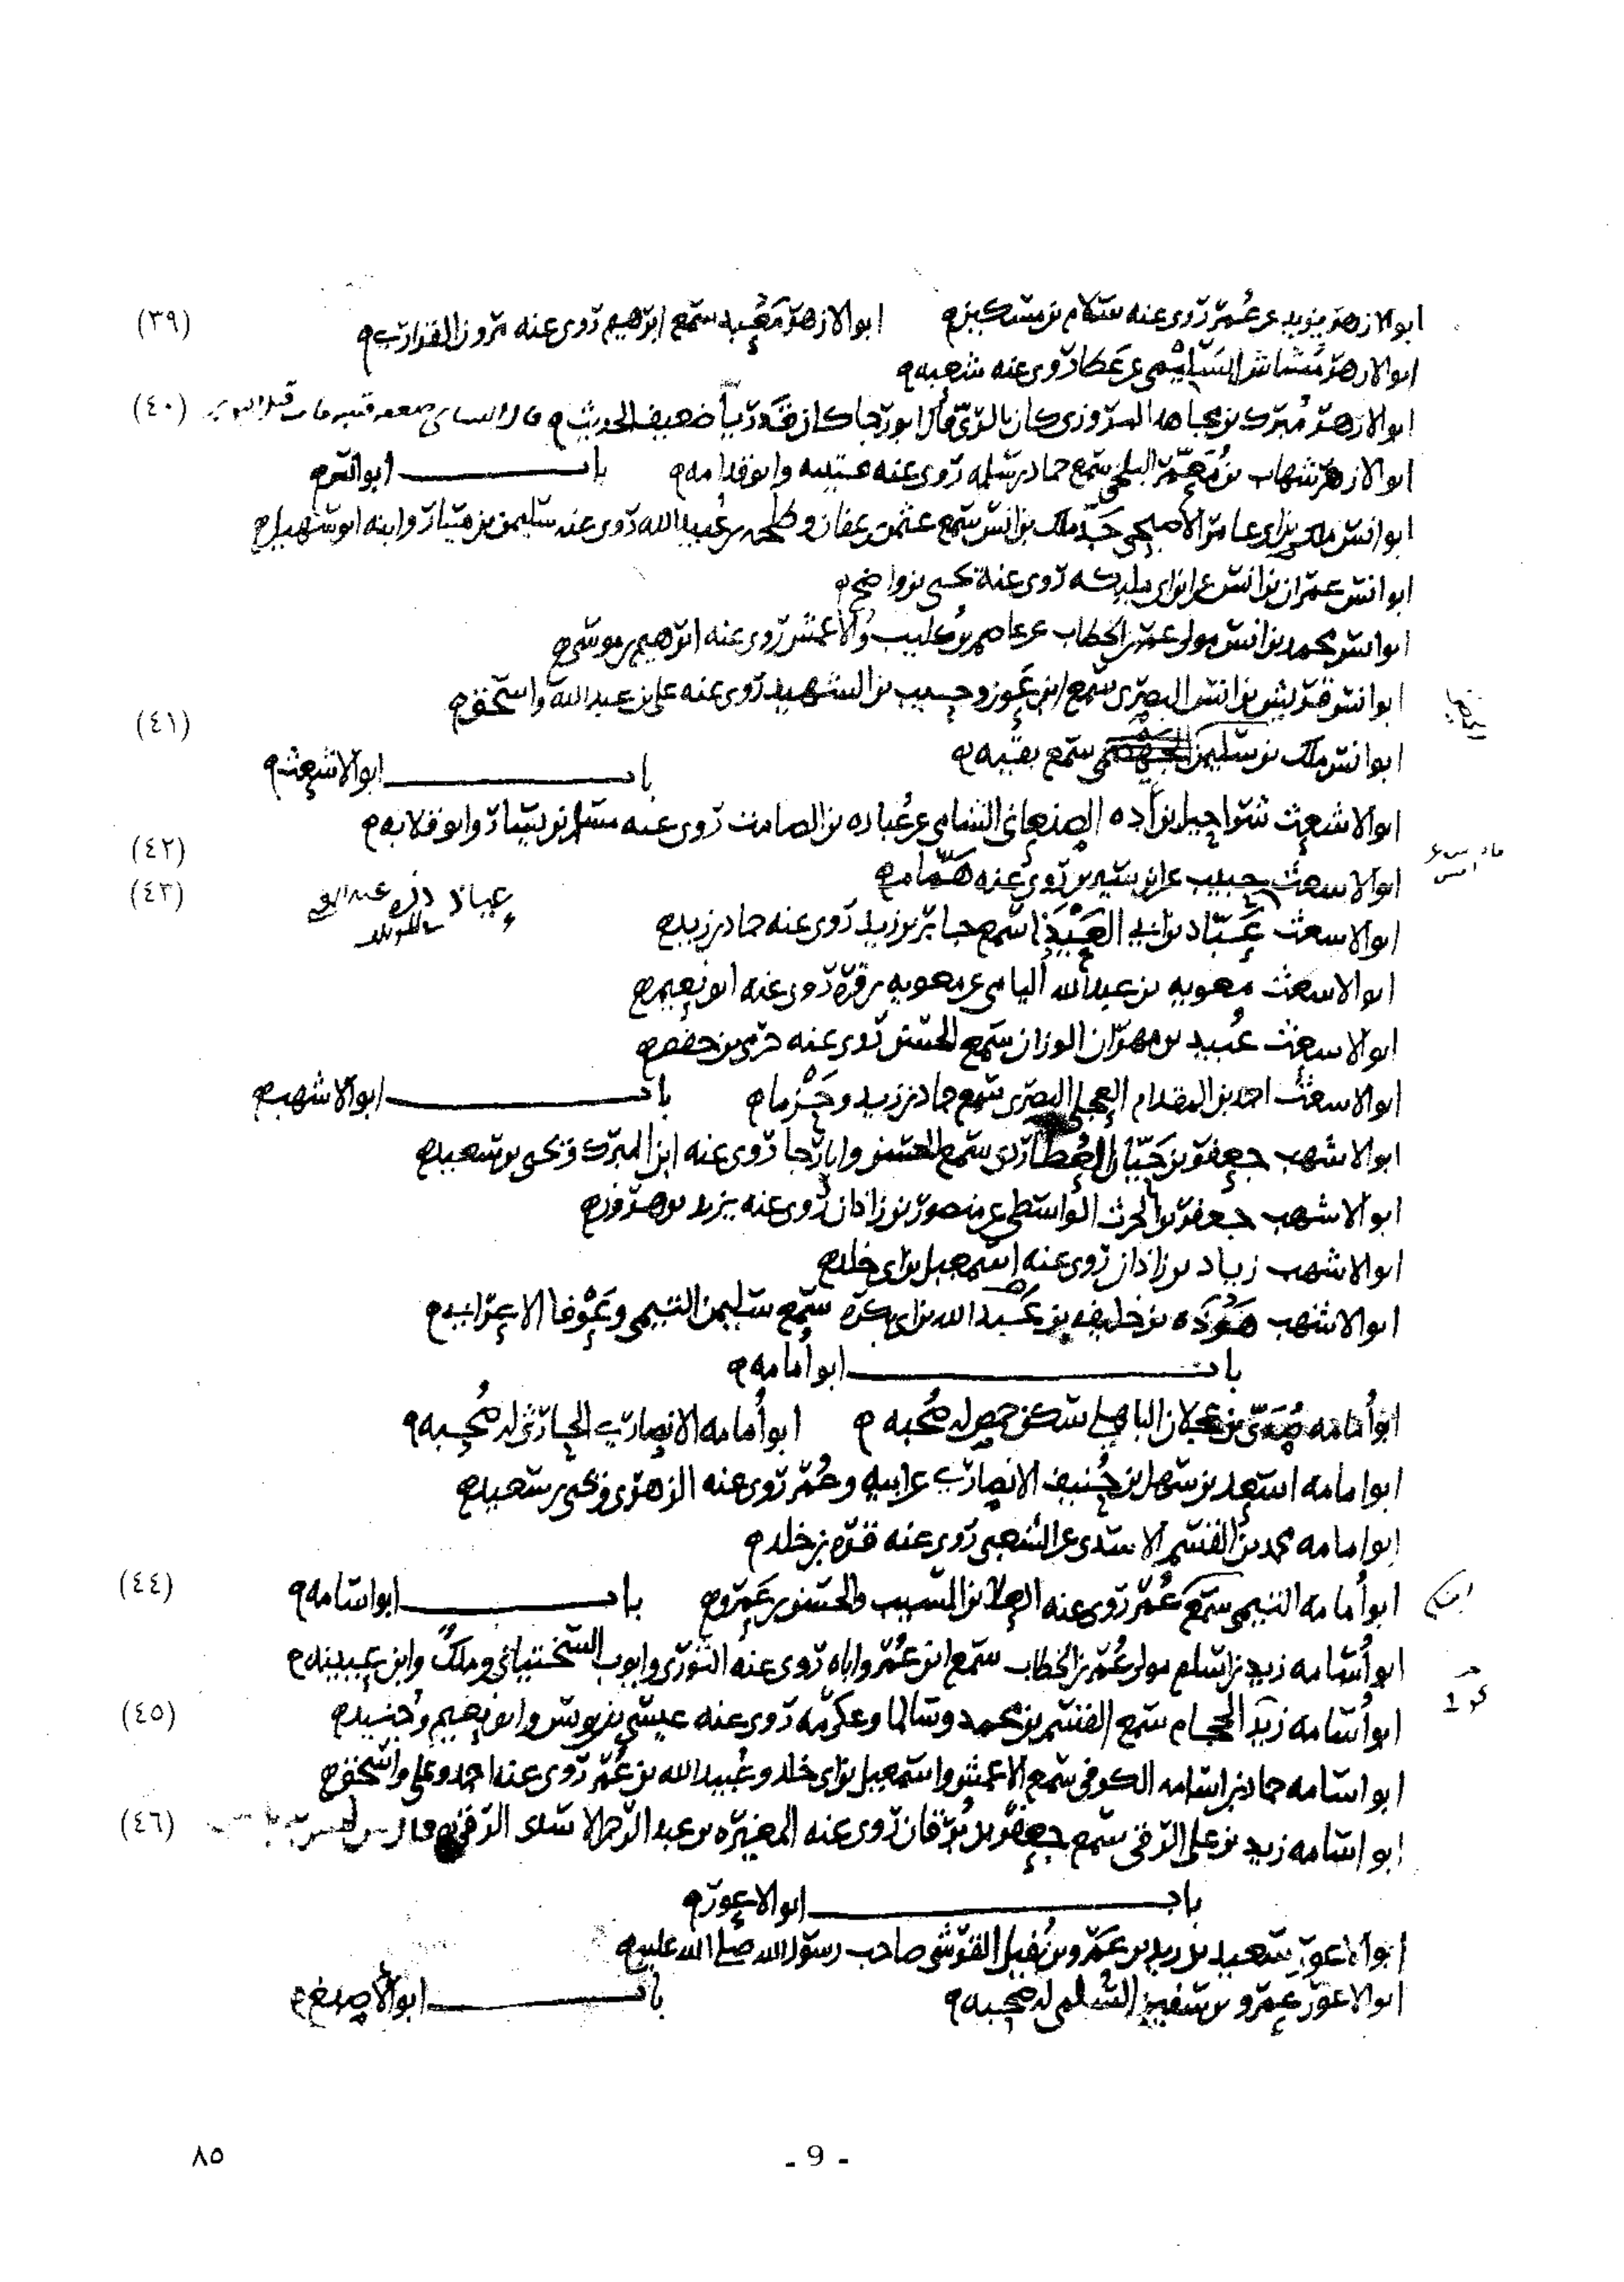 ابو الازهر يزيد عن عُمر روى عنه سلام بن مسكين ابو الازهر مَعْبد سمع ابرهيم روى عنه مرون الفزارى (٣٩)
ابو الازهر مُشاش السُّلَيْمى عن عطا روى عنه شعبه
ابو الازهر مُبرك بن مجاهد المروزى كان بالرىّ قال ابو رجا كان قدرياً ضعيف الحديث (٤٠)
ابو الازهر شهاب بن مُعَمَّر البلخى سمع حماد بن سلمه روى عنه عتيبه وابو قدامه باب ابو انس
ابو انس ملك بن ابى عامر الاصبحى جدّ ملك بن انس سمع عثمن بن عفان وطلحه بن عُبيد الله روى عنه سليمن بن يسار وابنه ابو سهيل
ابو انس عمران بن انس عن ابن ابى مليكه روى عنه يحيى بن واضح
ابو انس محمد بن انس مولى عمر بن الخطاب عن عاصم بن كليب والاعمش روى عنه ابرهيم بن موسى
ابو انس قريش بن انس البصرى سمع ابن عون وحبيب بن الشهيد روى عنه على بن عبد الله واسحق
(٤١)
ابو انس ملك بن سليمن سمع بقيه باب ابو الاشعث
ابو الاشعث شراحيل بن اده الصنعانى الشامى عن عُباده بن الصامت روى عنه مسلم بن يسار وابو قلابه
(٤٢)
ابو الاشعث حبيب عن ابن سيرين روى عنه همّام
(٤٣)
ابو الاشعث عبّاد بن ابى سمع جابر بن زيد روى عنه حماد بن زيد
ابو الاشعث معويه بن عبد الله اليامى عن معويه بن قرة روى عنه ابو نعيم
ابو الاشعث عُبيد بن مهران الوزان سمع الحسن روى عنه حرمى بن حفص
ابو الاشعث احمد بن المقدام العجلى البصرى سمع حماد بن زيد وحَزْما باب ابو الاشهب
ابو الاشهب جعفر بن حيّان العُطاردى سمع الحسن وابا رجا روى عنه ابن المبرك ويحيى بن سعيد
ابو الاشهب جعفر بن الحرث الواسطى عن منصور بن زاذان روى عنه يزيد بن هرون
ابو الاشهب زياد بن زاذان روى عنه اسمعيل بن ابى خلد
ابو الاشهب هَوْذَه بن خليفه بن عبد الله بن ابى بكرة سمع سليمن التيمى وعَوْفا الاعرابى
باب ابو أمامه
ابو أمامه صُدَىّ بن عجلان الباهلى سكن حمص له صُحبه ابو أمامه الانصارى الحارثى له صُحبه
ابو امامه اسعد بن سهل بن حُنيف الانصارى عن ابيه وعُمر روى عنه الزهرى ويحيى بن سعيد
ابو امامه محمد بن القسم الاسدى عن الشعبى روى عنه قرة بن خلد
ابو أمامه التيمى سمع عُمر روى عنه العلا بن المسيب والحسن بن عَمرو باب ابو اسامه (٤٤)
ابو أسامه زيد بن اسلم مولى عُمر بن الخطاب سمع ابن عُمر واباه روى عنه الثورى وايوب السختيانى وملكٌ وابن عيينه
ابو أسامه زيد الحجام سمع القسم بن محمد وسالما وعكرمه روى عنه عيسى بن يونس وابو نعيم وجنيد (٤٥)
ابو اسامه حماد بن اسامه الكوفى سمع الاعمش واسمعيل بن ابى خلد وعُبيد الله بن عُمر روى عنه احمد وعلى واسحق
ابو اسامه زيد بن على الرقى سمع جعفر بن بُرقان روى عنه المغيره بن عبد الرحمن الاسدى الرقى (٤٦)
باب ابو الاعور
ابو الاعور سعيد بن زيد بن عَمرو بن نُفيل القرشى صاحب رسول الله صلى الله عليه
ابو الاعور عمرو بن سفين السُّلمى له صُحبه باب ابو الاصبغ
- 9 -
٨٥